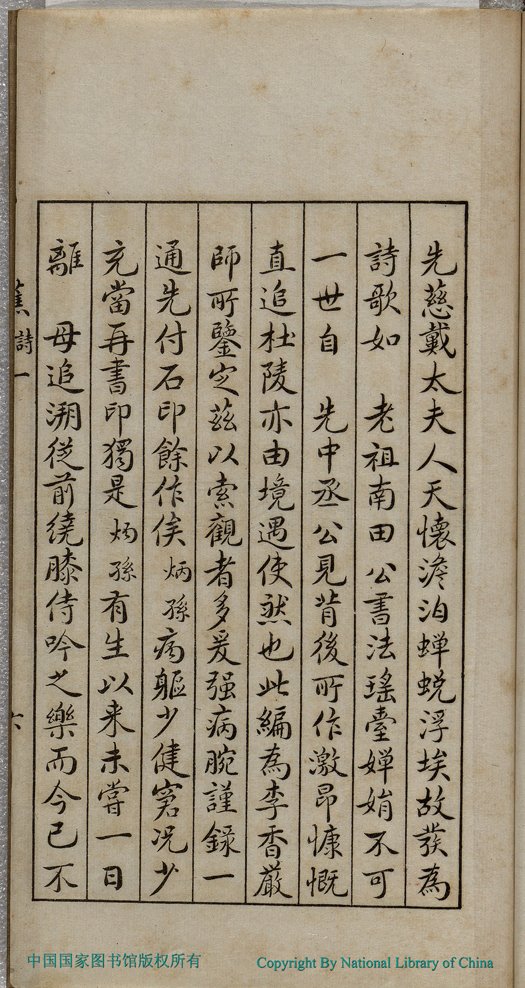 先慈戴太夫人天懷澹泊蟬蛻浮埃故發為
詩歌如　老祖南田公書法瑤臺嬋娟不可
一世自　先中丞公見背後所作激昂慷慨
直追杜陵亦由境遇使然也此編為李香嚴
師所鑒定茲以索觀者多爰强病腕謹錄一
通先付石印餘作俟炳孫病軀少健窘况少
充當再書印獨是炳孫有生以來未嘗一日
離　母追溯從前繞膝侍吟之樂而今已不
蕉詩一
六
中国国家图书馆版权所有
Copyright By National Library of China